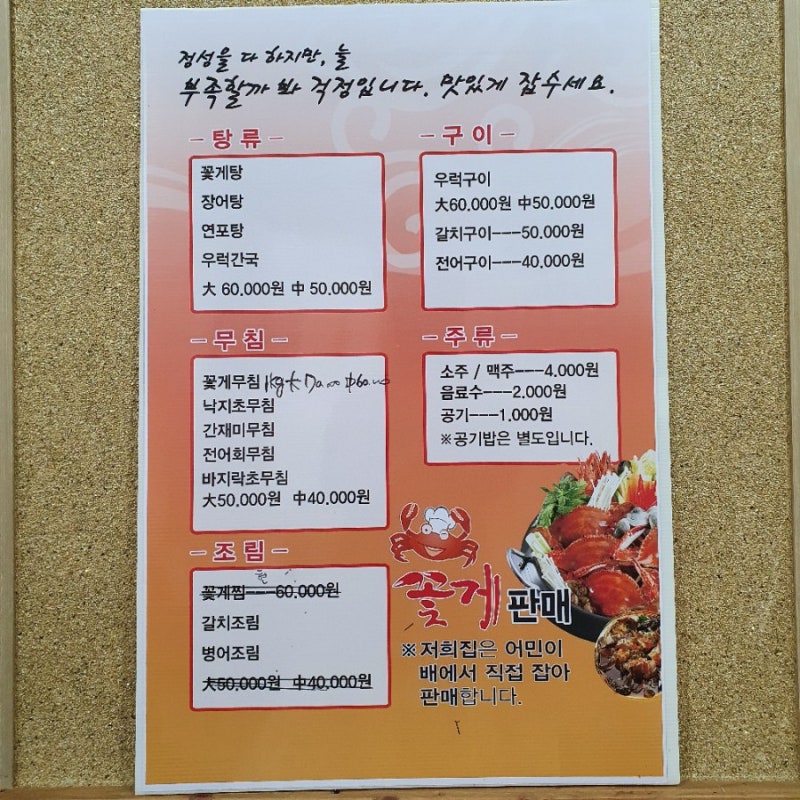 정성을 다 하지만, 늘
부족할까 봐 걱정입니다. 맛있게 잡수세요.
탕류
꽃게탕
장어탕
연포탕
우럭간국
大 60.000원 中 50.000원
구이
우럭구이
大60.000원 中50.000원
갈치구이---50.000원
전어구이---40.000원
무침
꽃게무침 1kg 大 70.000 中60.000
낙지초무침
간재미무침
전어회무침
바지락초무침
大50.000원 中40.000원
주류
소주 / 맥주---4.000원
음료수---2.000원
공기---1.000원
※공기밥은 별도입니다.
조림
꽃게찜---60.000원
갈치조림
병어조림
大50.000원 中40.000원
꽃게판매
※저희집은 어민이
배에서 직접 잡아
판매합니다.